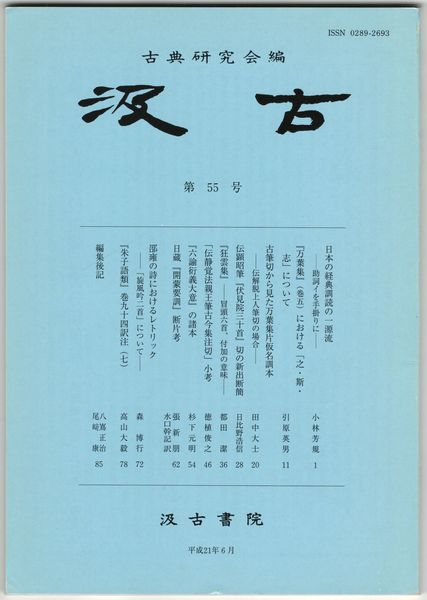 ISSN 0289-2693
古典研究会編
汲古
第 55 号
日本の経典訓読の一源流
――助詞イを手掛りに――
小林芳規 1
『万葉集』(巻五)における「之・斯・
志」について
引原英男 11
古筆切から見た万葉集片仮名訓本
――伝解脱上人筆切の場合――
田中大士 20
伝顕昭筆『伏見院三十首』切の新出断簡
日比野浩信 28
『狂雲集』――冒頭六首、付加の意味――
都田潔 36
「伝静覚法親王筆古今集注切」小考
徳植俊之 46
『六諭衍義大意』の諸本
杉下元明 54
日蔵『開蒙要訓』断片考
張新朋
水口幹記 訳 62
邵雍の詩におけるレトリック
――「旋風吟二首」について――
森博行 72
『朱子語類』巻九十四訳注(七)
高山大毅 78
編集後記
八嶌正治
尾﨑康 85
汲古書院
平成21年6月